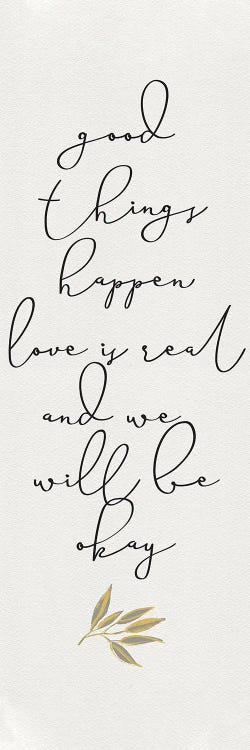 good
things
happen
love is real
and we
will be
okay